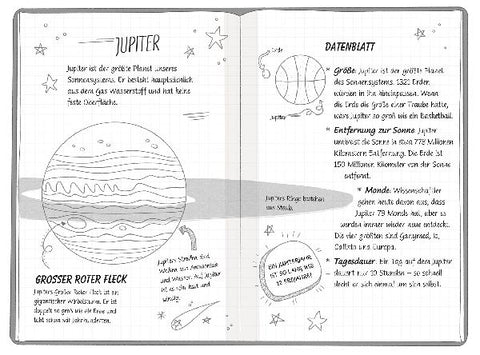 JUPITER
Jupiter ist der größte Planet unseres
Sonnensystems. Er besteht hauptsächlich
aus dem Gas Wasserstoff und hat keine
feste Oberfläche.
GROSSER ROTER FLECK
Jupiters Großer Roter Fleck ist ein
gigantischer Wirbelsturm. Er ist
doppelt so groß wie die Erde und
tobt schon seit Jahrhunderten.
Jupiters Streifen sind
Wolken aus Ammoniak
und Wasser. Auf Jupiter
ist es sehr kalt und
windig.
Erde
Jupiter
Jupiters Ringe bestehen
aus Staub.
EIN JUPITERJAHR
IST SO LANG WIE
12 ERDJAHRE!
DATENBLATT
* Größe Jupiter ist der größte Planet
des Sonnensystems. 1321 Erden
würden in ihn hineinpassen. Wenn
die Erde die Größe einer Traube hätte,
wäre Jupiter so groß wie ein Basketball.
* Entfernung zur Sonne Jupiter
umkreist die Sonne in etwa 778 Millionen
Kilometern Entfernung. Die Erde ist
150 Millionen Kilometer von der Sonne
entfernt.
* Monde Wissenschaftler
gehen heute davon aus, dass
Jupiter 79 Monde hat, aber es
werden immer wieder neue entdeckt.
Die vier größten sind Ganymed, Io,
Callisto und Europa.
* Tagesdauer Ein Tag auf dem Jupiter
dauert nur 10 Stunden – so schnell
dreht er sich einmal um sich selbst.